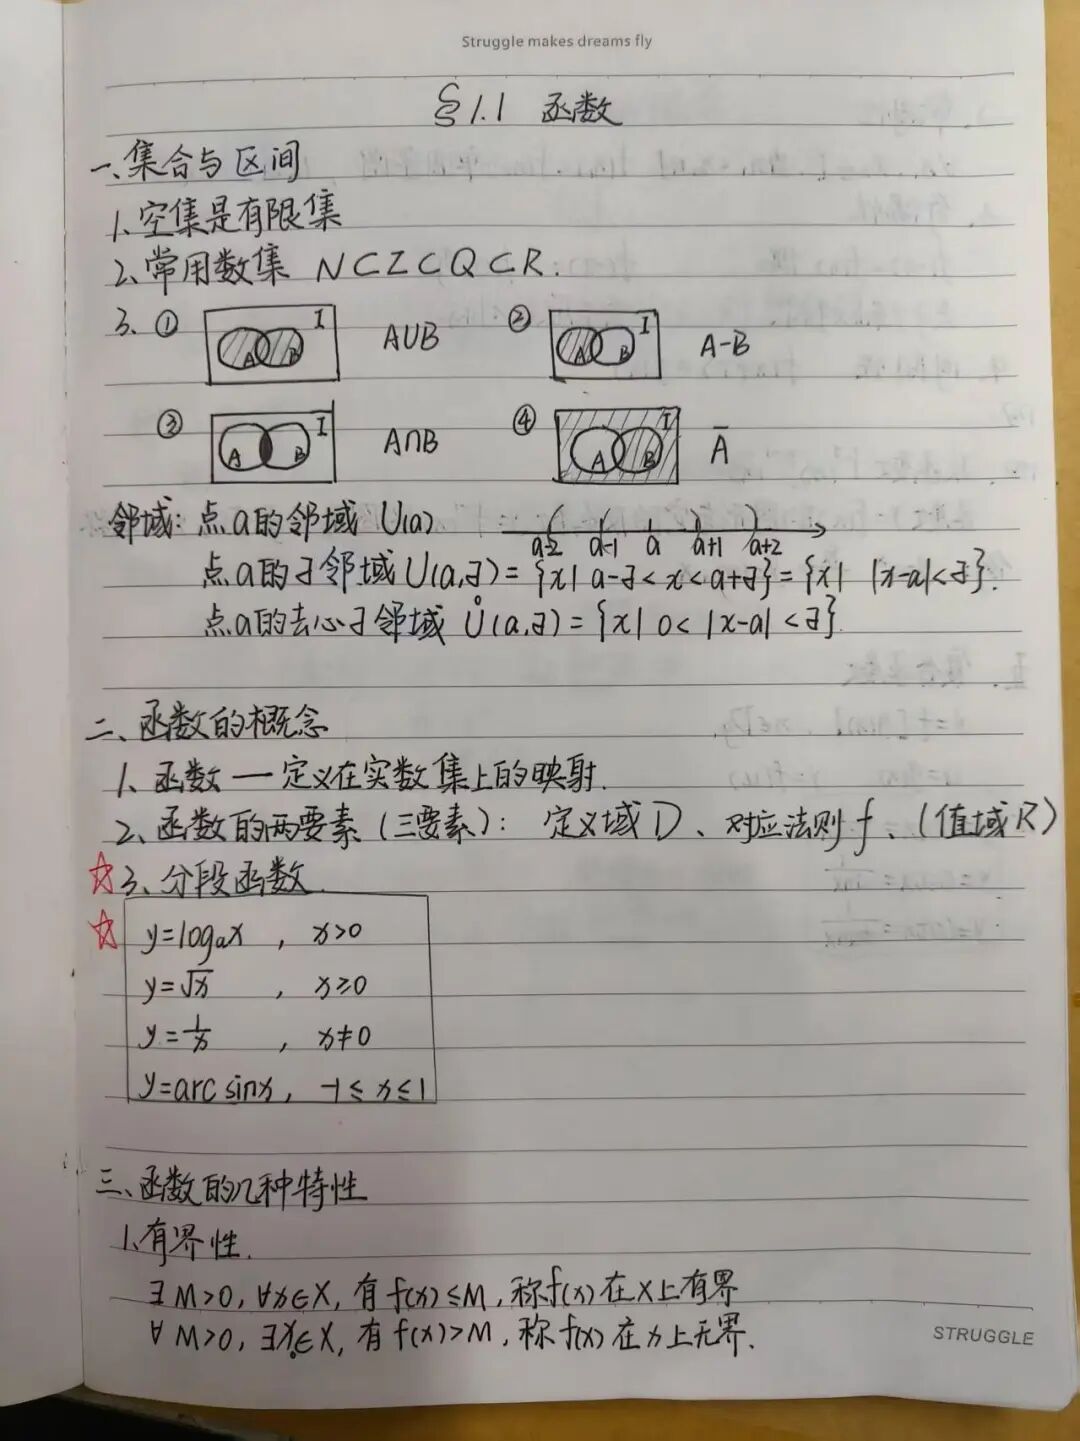 Struggle makes dreams fly
§1.1 函数
一、集合与区间
1、空集是有限集
2、常用数集 N⊂Z⊂Q⊂R.
3. ① A B I A∪B ② A B I A-B
③ A B I A∩B ④ A B I Ā
邻域: 点a的邻域 U(a) a-2 a-1 a a+1 a+2
点a的δ邻域U(a,δ)={x| a-δ<x<a+δ}={x| |x-a|<δ}.
点a的去心δ邻域 Ů(a,δ)={x| 0<|x-a|<δ}.
二、函数的概念
1、函数 — 定义在实数集上的映射.
2、函数的两要素(三要素): 定义域D、对应法则f、(值域R)
☆3、分段函数.
☆ y=logₐx , x>0
y=√x , x≥0
y=1/x , x≠0
y=arc sinx, -1≤x≤1
三、函数的几种特性
1、有界性.
∃M>0,∀x∈X,有f(x)≤M,称f(x)在X上有界
∀M>0,∃x₀∈X,有f(x)>M,称f(x)在x上无界.
STRUGGLE